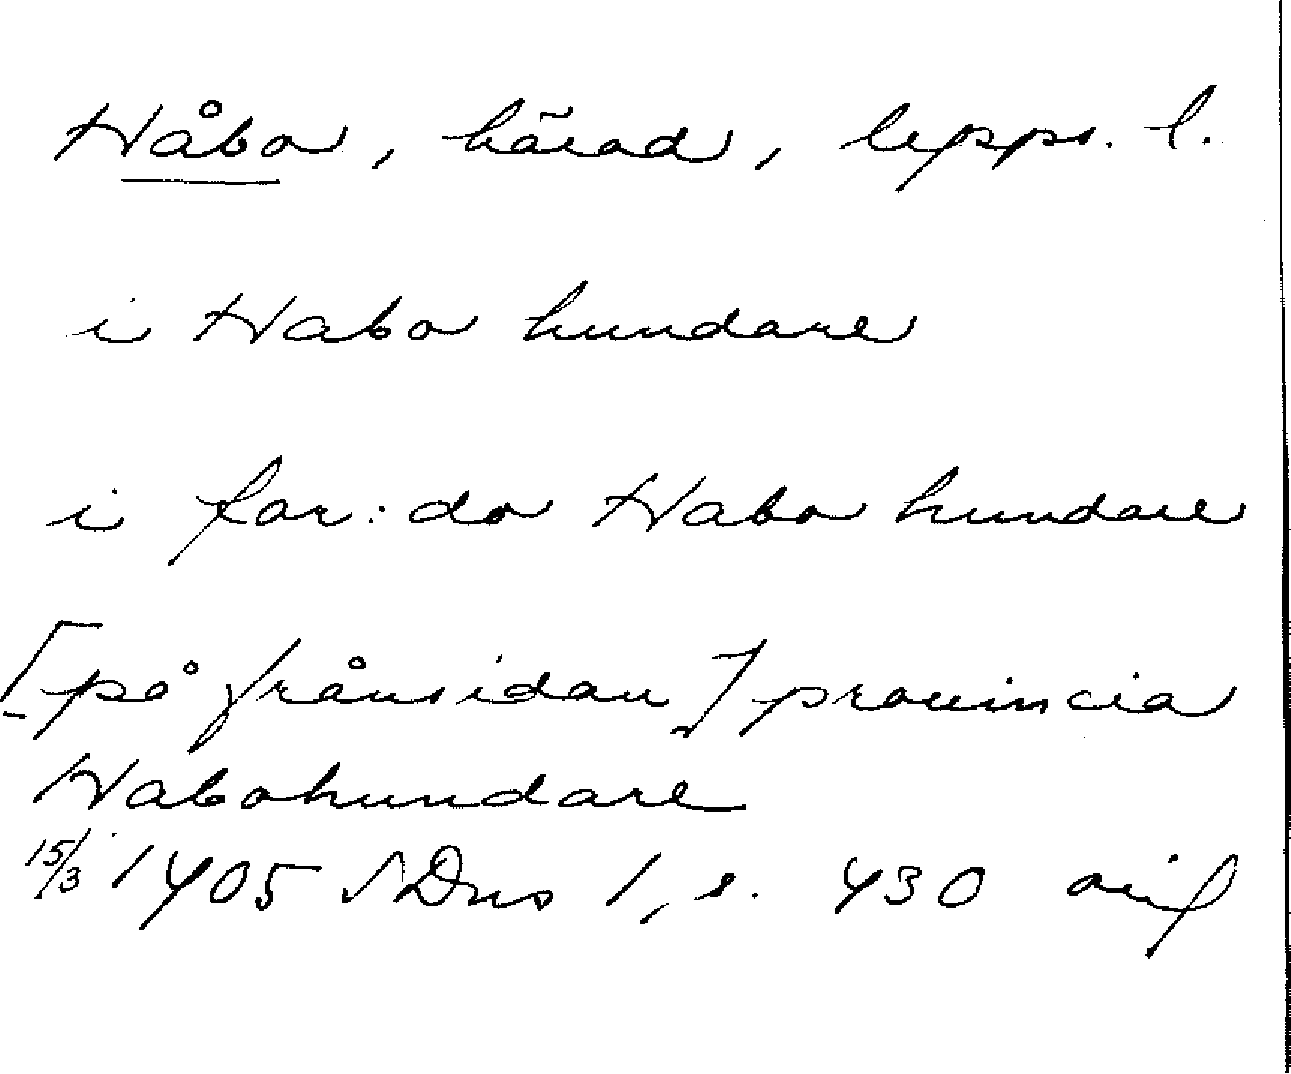 Håbo, härad, Upps. l.
i Habo hundare
i for:do Habo hundare
[på frånsidan] prouincia
Habohundare
15/3 1405 SDns 1, s. 430 avs